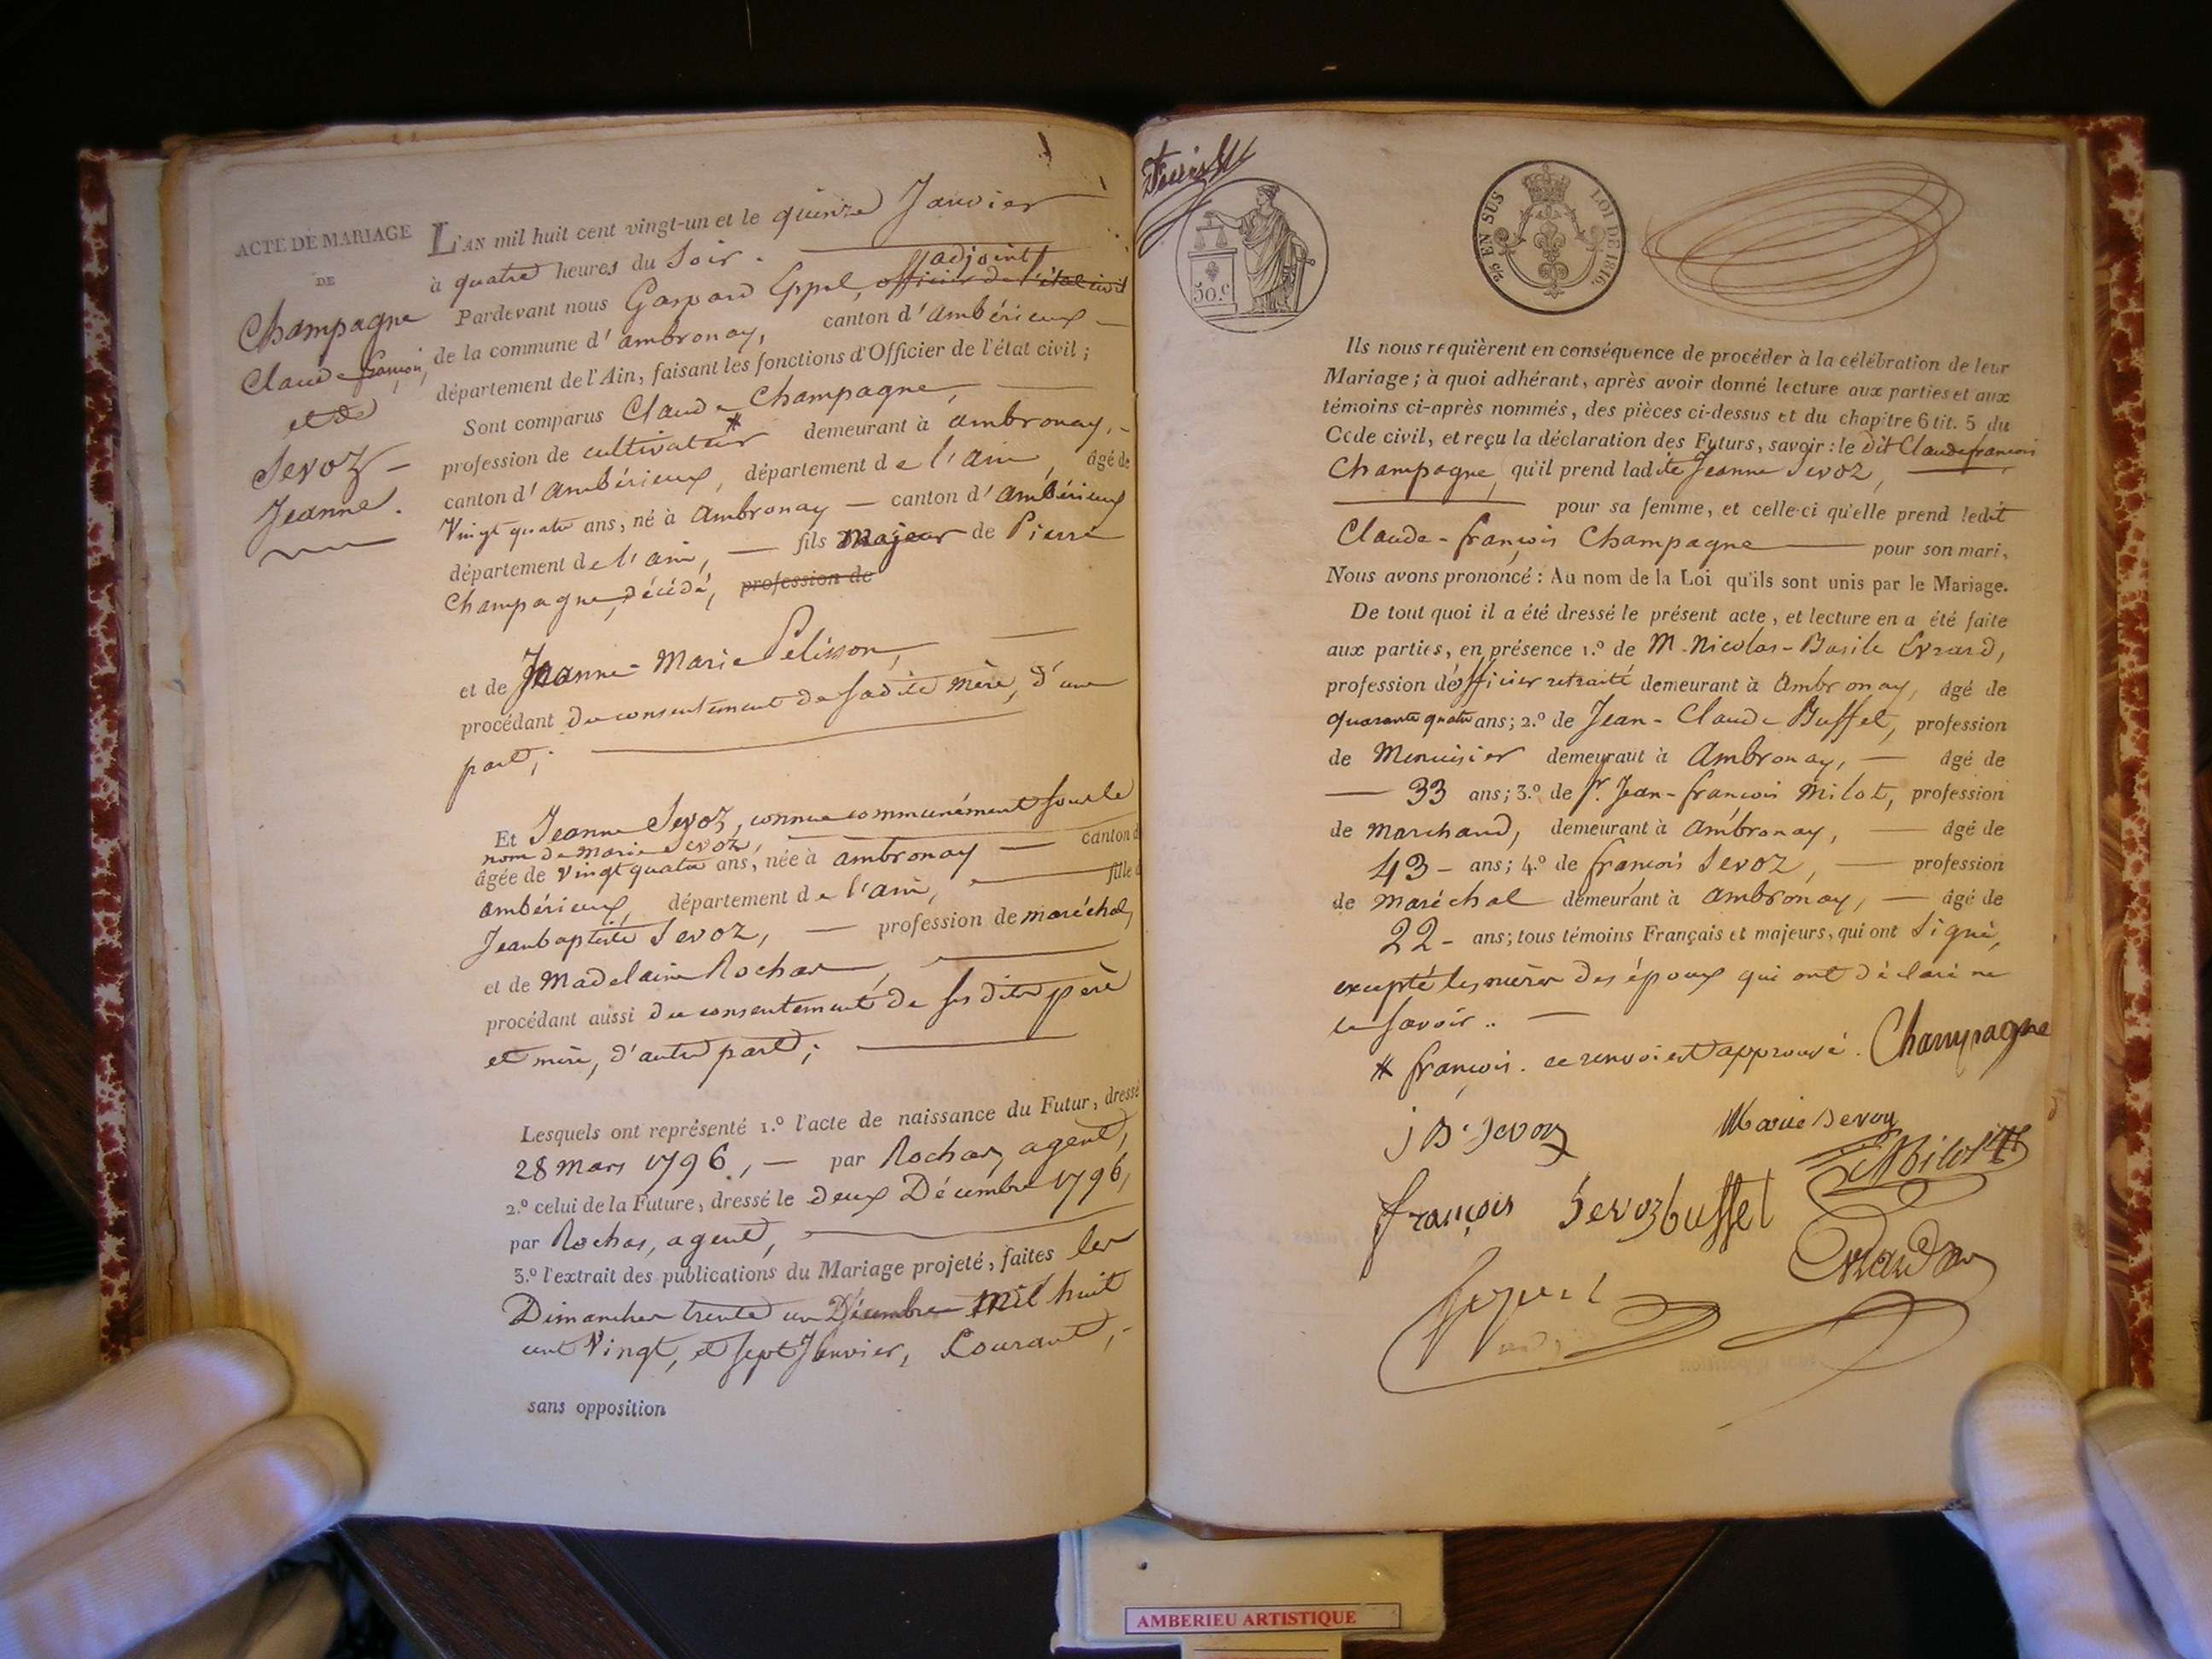 ACTE DE MARIAGE
DE
Champagne
Claude françois,
et de
Sevoz
Jeanne.
L'AN mil huit cent vingt-un et le quinze Janvier
à quatre heures du Soir.
adjoint
Pardevant nous Gaspard Eppel, officier de l'état civil
de la commune d'ambronay, canton d'ambérieux
département de l'Ain, faisant les fonctions d'Officier de l'état civil;
Sont comparus Claude * Champagne,
profession de cultivateur demeurant à ambronay,
canton d'ambérieux, département de l'ain, âgé de
Vingt quatre ans, né à Ambronay canton d'ambérieux
département de l'ain, fils majeur de Pierre
Champagne, décédé, profession de
et de Jeanne-Marie Pelisson,
procédant du consentement de sadite mère, d'une
part;
Et Jeanne Sevoz, connue communément sous le
nom de Marie Sevoz,
âgée de vingt quatre ans, née à ambronay canton d
ambérieux, département de l'ain, fille d
Jeanbaptiste Sevoz, profession de maréchal,
et de Madelaine Rochas,
procédant aussi du consentement de ses dits père
et mère, d'autre part;
Lesquels ont représenté 1.º l'acte de naissance du Futur, dressé
28 mars 1796, par Rochas, agent,
2.º celui de la Future, dressé le deux Décembre 1796,
par Rochas, agent,
3.º l'extrait des publications du Mariage projeté, faites les
Dimanches trente un Décembre mil huit
cent Vingt, et sept Janvier, Courant,
sans opposition
50.c
2/5 EN SUS LOI DE 1816.
Ils nous requièrent en conséquence de procéder à la célébration de leur
Mariage; à quoi adhérant, après avoir donné lecture aux parties et aux
témoins ci-après nommés, des pièces ci-dessus et du chapitre 6 tit. 5 du
Code civil, et reçu la déclaration des Futurs, savoir: le dit Claude françois
Champagne, qu'il prend ladite Jeanne Sevoz,
pour sa femme, et celle-ci qu'elle prend ledit
Claude-françois Champagne pour son mari,
Nous avons prononcé: Au nom de la Loi qu'ils sont unis par le Mariage.
De tout quoi il a été dressé le présent acte, et lecture en a été faite
aux parties, en présence 1.º de M. Nicolas-Basile Evrard,
profession d'officier retraité demeurant à Ambronay, âgé de
quarante quatre ans; 2.º de Jean-Claude Buffet, profession
de Menuisier demeurant à Ambronay, âgé de
33 ans; 3.º de Sr. Jean-françois Milot, profession
de marchand, demeurant à ambronay, âgé de
43 ans; 4.º de françois Sevoz, profession
de maréchal demeurant à ambronay, âgé de
22 ans; tous témoins Français et majeurs, qui ont Signé,
excepté les mères des époux qui ont déclaré ne
le savoir..
* françois. ce renvoi est approuvé. Champagne
j B. Sevoz Marie Sevoz
Milot
françois Sevoz buffet
Evrard
AMBERIEU ARTISTIQUE